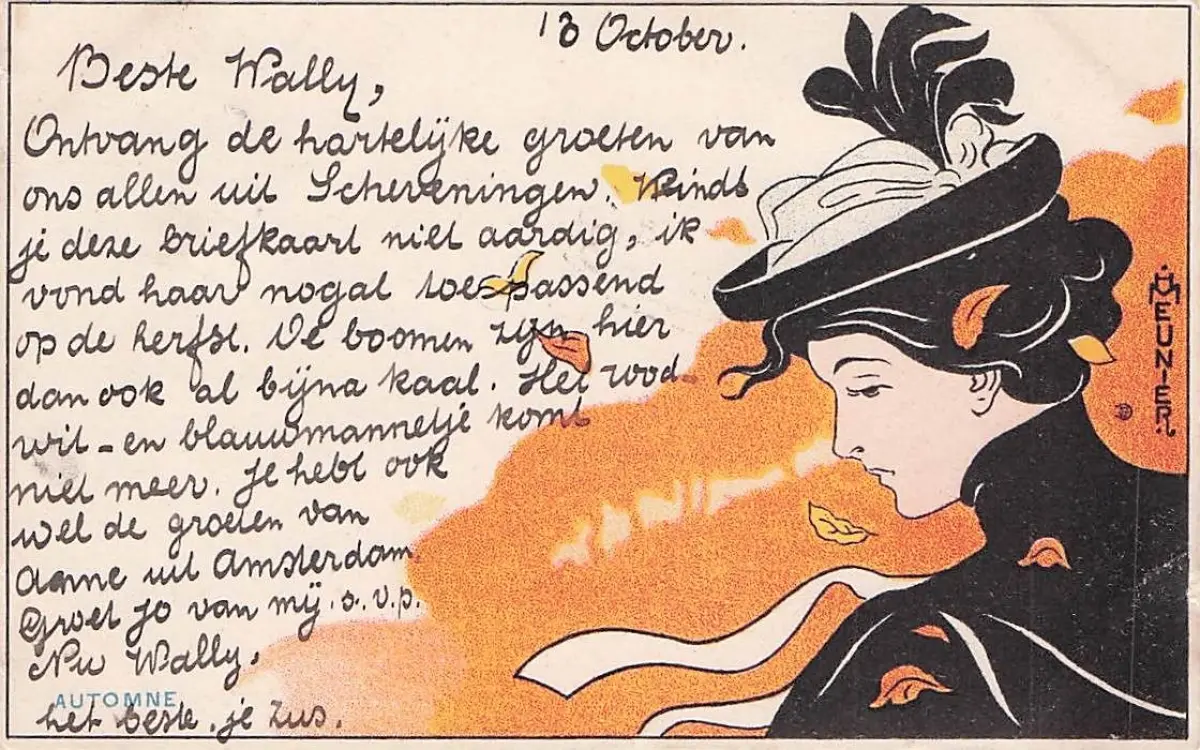 13 October.
Beste Wally,
Ontvang de hartelijke groeten van
ons allen uit Scheveningen. Vindt
je deze briefkaart niet aardig, ik
vond haar nogal toespassend
op de herfst. De boomen zijn hier
dan ook al bijna kaal. Het rood-
wit-en blauwmannetje komt
niet meer. Je hebt ook
wel de groeten van
Anne uit Amsterdam.
Groet Jo van mij s.v.p.
Nu Wally,
AUTOMNE
het beste, je zus.
H MEUNIER